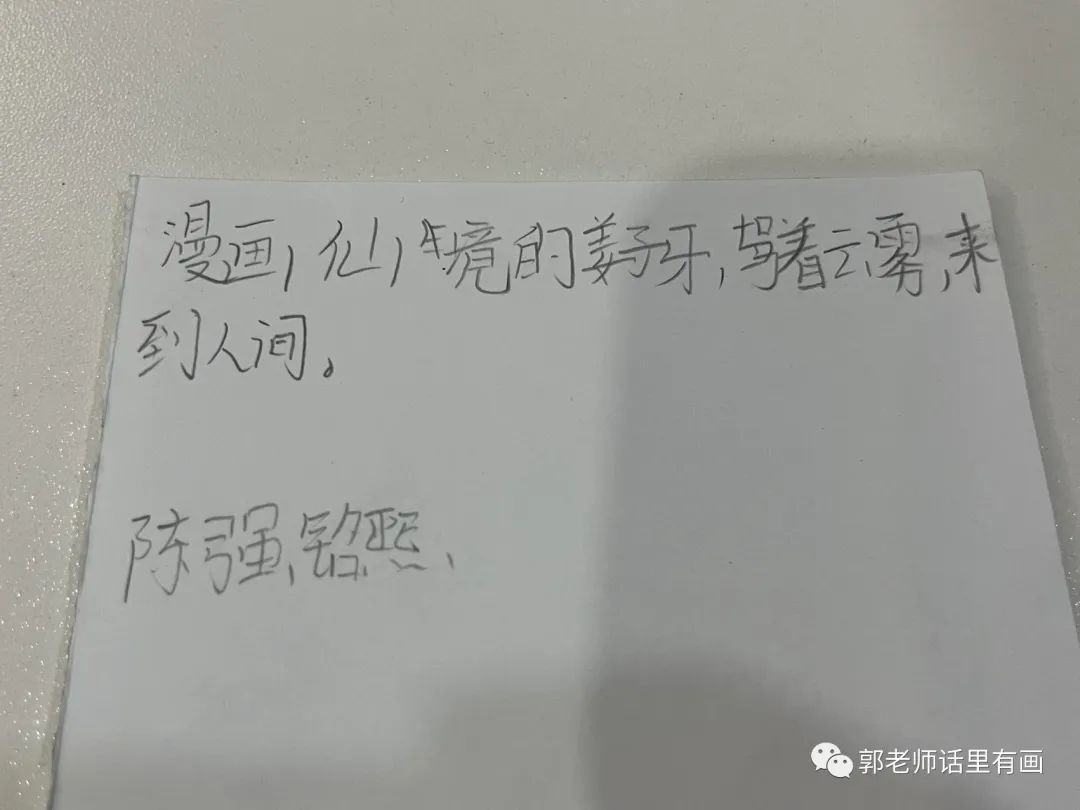 漫画，仙，境的姜子牙，驾着云雾，来
到人间。
陈强、铭熙、
郭老师话里有画